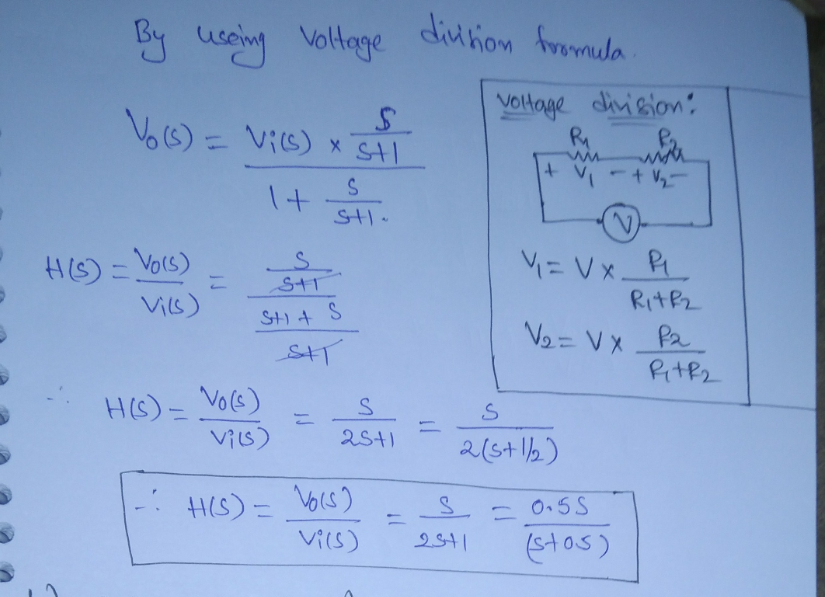 By useing Voltage division fromula.
Vo(s) = (Vi(s) × s/(s+1)) / (1 + s/(s+1)).
H(s) = Vo(s)/Vi(s) = (s/(s+1)) / ((s+1+s)/(s+1))
∴ H(s) = Vo(s)/Vi(s) = s/(2s+1) = s/(2(s+1/2))
∴ H(s) = Vo(s)/Vi(s) = s/(2s+1) = 0.5s/(s+0.5)
Voltage division:
R1 R2
+ V1 - + V2 -
V
V1 = V × R1/(R1+R2)
V2 = V × R2/(R1+R2)